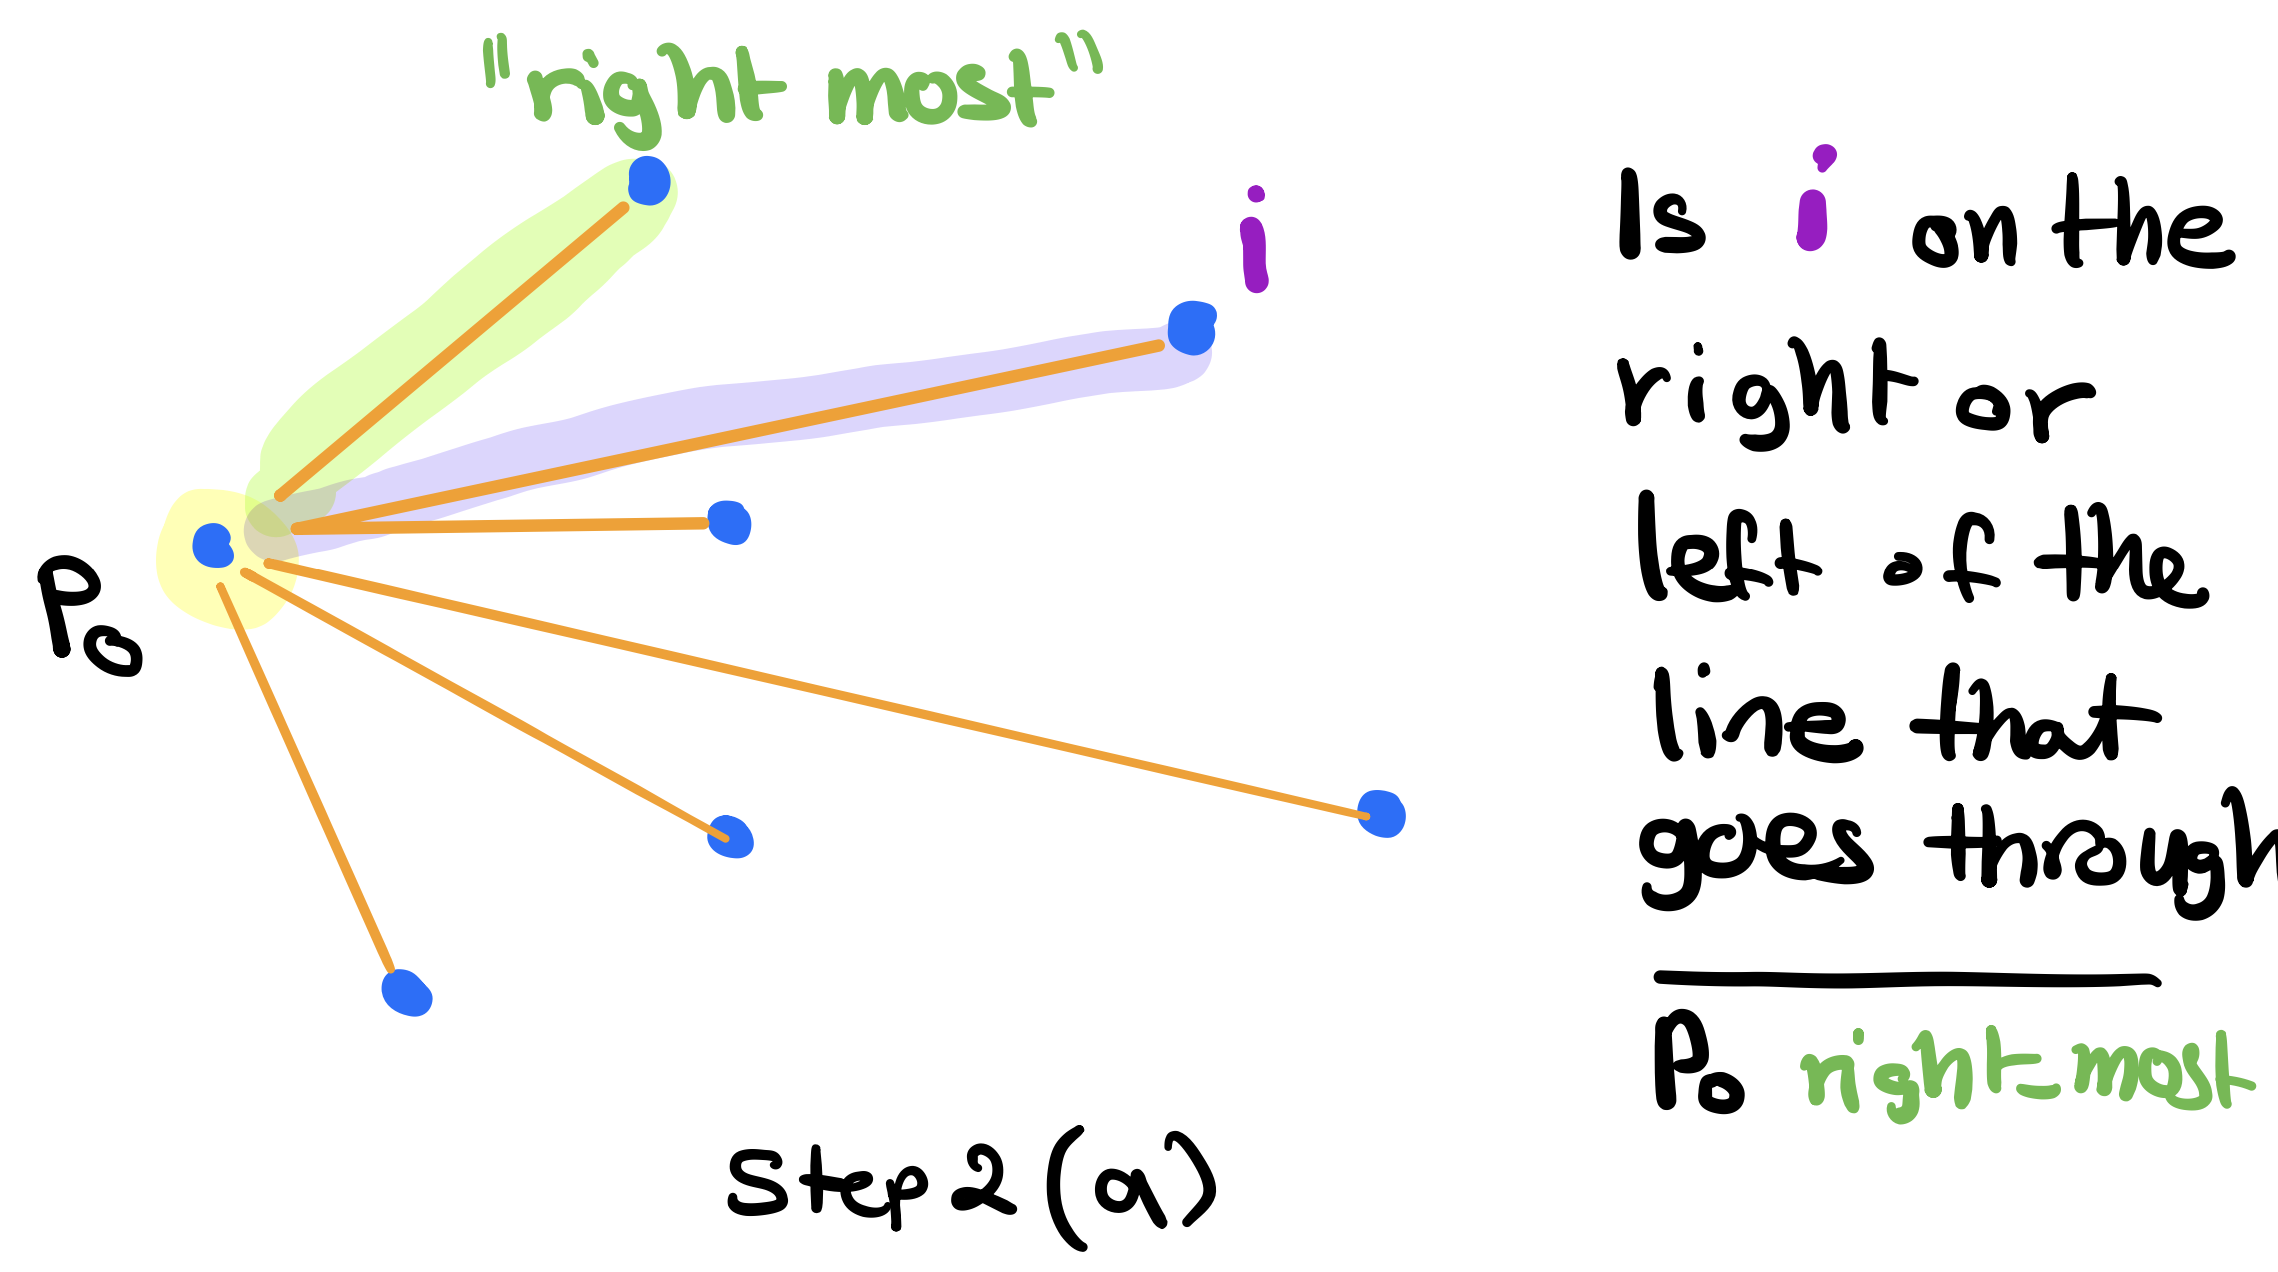 "right most"
i
P0
Step 2 (a)
Is i on the
right or
left of the
line that
goes through
P0 right-most